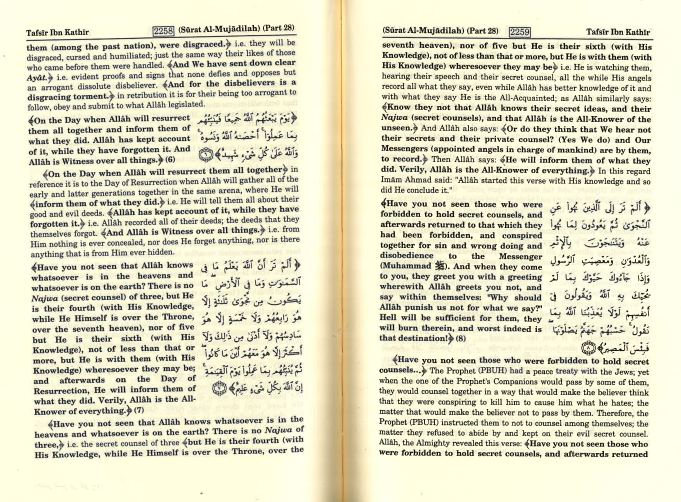 Tafsîr Ibn Kathîr 2258 (Sûrat Al-Mujâdilah) (Part 28)
them (among the past nation), were disgraced.﴿ i.e. they will be
disgraced, cursed and humiliated; just the same way their likes of those
who came before them were handled. ﴾And We have sent down clear
Ayât.﴿ i.e. evident proofs and signs that none defies and opposes but
an arrogant dissolute disbeliever. ﴾And for the disbelievers is a
disgracing torment.﴿ in retribution it is for their being too arrogant to
follow, obey and submit to what Allâh legislated.
﴾On the Day when Allâh will resurrect
them all together and inform them of
what they did. Allâh has kept account
of it, while they have forgotten it. And
Allâh is Witness over all things.﴿ (6)
﴿يَوْمَ يَبْعَثُهُمُ اللَّهُ جَمِيعًا فَيُنَبِّئُهُم
بِمَا عَمِلُوا أَحْصَاهُ اللَّهُ وَنَسُوهُ
وَاللَّهُ عَلَىٰ كُلِّ شَيْءٍ شَهِيدٌ﴾
﴾On the Day when Allâh will resurrect them all together﴿ in
reference it is to the Day of Resurrection when Allâh will gather all of the
early and latter generations together in the same arena, where He will
﴾inform them of what they did.﴿ i.e. He will tell them all about their
good and evil deeds. ﴾Allâh has kept account of it, while they have
forgotten it.﴿ i.e. Allâh recorded all of their deeds; the deeds that they
themselves forgot. ﴾And Allâh is Witness over all things.﴿ i.e. from
Him nothing is ever concealed, nor does He forget anything, nor is there
anything that is from Him ever hidden.
﴾Have you not seen that Allâh knows
whatsoever is in the heavens and
whatsoever is on the earth? There is no
Najwa (secret counsel) of three, but He
is their fourth (with His Knowledge,
while He Himself is over the Throne,
over the seventh heaven), nor of five
but He is their sixth (with His
Knowledge), not of less than that or
more, but He is with them (with His
Knowledge) wheresoever they may be;
and afterwards on the Day of
Resurrection, He will inform them of
what they did. Verily, Allâh is the All-
Knower of everything.﴿ (7)
﴿أَلَمْ تَرَ أَنَّ اللَّهَ يَعْلَمُ مَا فِي
السَّمَاوَاتِ وَمَا فِي الْأَرْضِ مَا
يَكُونُ مِن نَّجْوَىٰ ثَلَاثَةٍ إِلَّا
هُوَ رَابِعُهُمْ وَلَا خَمْسَةٍ إِلَّا هُوَ
سَادِسُهُمْ وَلَا أَدْنَىٰ مِن ذَٰلِكَ وَلَا
أَكْثَرَ إِلَّا هُوَ مَعَهُمْ أَيْنَ مَا كَانُوا
ثُمَّ يُنَبِّئُهُم بِمَا عَمِلُوا يَوْمَ الْقِيَامَةِ
إِنَّ اللَّهَ بِكُلِّ شَيْءٍ عَلِيمٌ﴾
﴾Have you not seen that Allâh knows whatsoever is in the
heavens and whatsoever is on the earth? There is no Najwa of
three,﴿ i.e. the secret counsel of three ﴾but He is their fourth (with
His Knowledge, while He Himself is over the Throne, over the
(Sûrat Al-Mujâdilah) (Part 28) 2259 Tafsîr Ibn Kathîr
seventh heaven), nor of five but He is their sixth (with His
Knowledge), not of less than that or more, but He is with them (with
His Knowledge) wheresoever they may be﴿ i.e. He is watching them,
hearing their speech and their secret counsel, all the while His angels
record all what they say, even while Allâh has better knowledge of it and
with what they say He is the All-Acquainted; as Allâh similarly says:
﴾Know they not that Allâh knows their secret ideas, and their
Najwa (secret counsels), and that Allâh is the All-Knower of the
unseen.﴿ And Allâh also says: ﴾Or do they think that We hear not
their secrets and their private counsel? (Yes We do) and Our
Messengers (appointed angels in charge of mankind) are by them,
to record.﴿ Then Allâh says: ﴾He will inform them of what they
did. Verily, Allâh is the All-Knower of everything.﴿ In this regard
Imâm Ahmad said: "Allâh started this verse with His knowledge and so
did He conclude it."
﴾Have you not seen those who were
forbidden to hold secret counsels, and
afterwards returned to that which they
had been forbidden, and conspired
together for sin and wrong doing and
disobedience to the Messenger
(Muhammad ﷺ). And when they come
to you, they greet you with a greeting
wherewith Allâh greets you not, and
say within themselves: "Why should
Allâh punish us not for what we say?"
Hell will be sufficient for them, they
will burn therein, and worst indeed is
that destination!﴿ (8)
﴿أَلَمْ تَرَ إِلَى الَّذِينَ نُهُوا عَنِ
النَّجْوَىٰ ثُمَّ يَعُودُونَ لِمَا نُهُوا
عَنْهُ وَيَتَنَاجَوْنَ بِالْإِثْمِ
وَالْعُدْوَانِ وَمَعْصِيَتِ الرَّسُولِ
وَإِذَا جَاءُوكَ حَيَّوْكَ بِمَا لَمْ
يُحَيِّكَ بِهِ اللَّهُ وَيَقُولُونَ فِي
أَنفُسِهِمْ لَوْلَا يُعَذِّبُنَا اللَّهُ بِمَا
نَقُولُ حَسْبُهُمْ جَهَنَّمُ يَصْلَوْنَهَا
فَبِئْسَ الْمَصِيرُ﴾
﴾Have you not seen those who were forbidden to hold secret
counsels...﴿ The Prophet (PBUH) had a peace treaty with the Jews; yet
when one of the Prophet's Companions would pass by some of them,
they would counsel together in a way that would make the believer think
that they were conspiring to kill him to cause him what he hates; the
matter that would make the believer not to pass by them. Therefore, the
Prophet (PBUH) instructed them not to counsel among themselves; the
matter they refused to abide by and kept on their evil secret counsel.
Allâh, the Almighty revealed this verse: ﴾Have you not seen those who
were forbidden to hold secret counsels, and afterwards returned